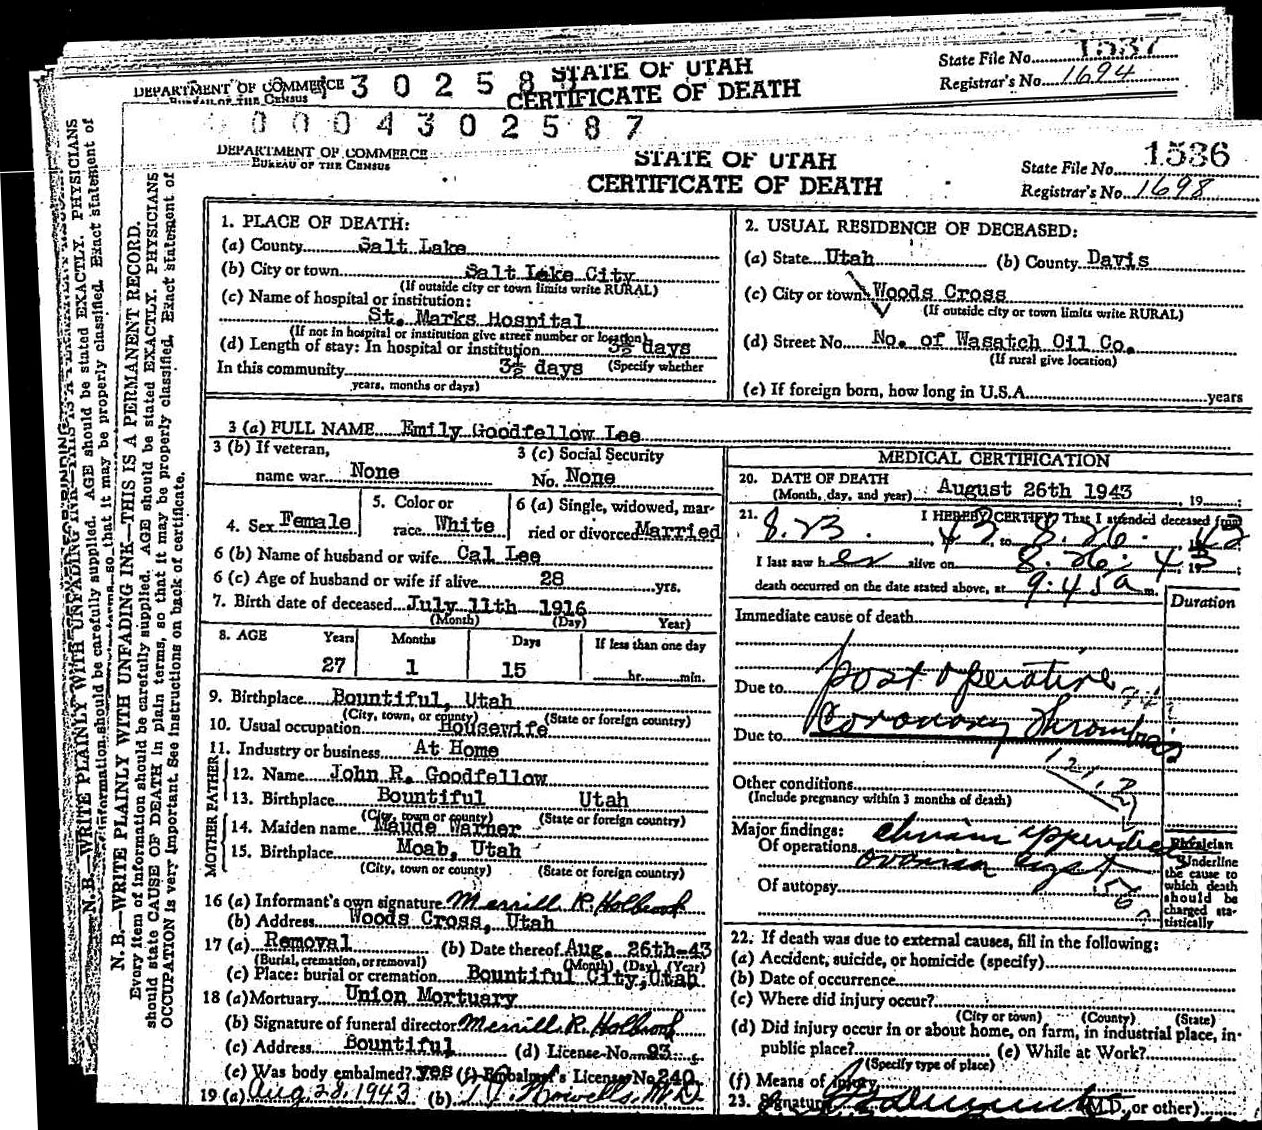 State File No. 1537
DEPARTMENT OF COMMERCE 3 0 2 5 8 STATE OF UTAH Registrar's No. 1694
BUREAU OF THE CENSUS CERTIFICATE OF DEATH
0 0 0 4 3 0 2 5 8 7
DEPARTMENT OF COMMERCE STATE OF UTAH State File No. 1536
BUREAU OF THE CENSUS CERTIFICATE OF DEATH Registrar's No. 1698
N. B.—WRITE PLAINLY WITH UNFADING INK—THIS IS A PERMANENT RECORD.
Every item of information should be carefully supplied. AGE should be stated EXACTLY. PHYSICIANS
should state CAUSE OF DEATH in plain terms, so that it may be properly classified. Exact statement of
OCCUPATION is very important. See instructions on back of certificate.
1. PLACE OF DEATH:
(a) County Salt Lake
(b) City or town Salt Lake City
(If outside city or town limits write RURAL)
(c) Name of hospital or institution:
St. Marks Hospital
(If not in hospital or institution give street number or location)
(d) Length of stay: In hospital or institution 3½ days
In this community 3½ days (Specify whether
years, months or days)
2. USUAL RESIDENCE OF DECEASED:
(a) State Utah (b) County Davis
(c) City or town Woods Cross
(If outside city or town limits write RURAL)
(d) Street No. No. of Wasatch Oil Co.
(If rural give location)
(e) If foreign born, how long in U.S.A. years
3 (a) FULL NAME Emily Goodfellow Lee
3 (b) If veteran, 3 (c) Social Security
name war None No. None
4. Sex Female 5. Color or race White 6 (a) Single, widowed, married or divorced Married
6 (b) Name of husband or wife Cal Lee
6 (c) Age of husband or wife if alive 28 yrs.
7. Birth date of deceased July 11th 1916
(Month) (Day) Year)
8. AGE Years Months Days If less than one day
27 1 15 hr. min.
9. Birthplace Bountiful, Utah
(City, town, or county) (State or foreign country)
10. Usual occupation Housewife
11. Industry or business At Home
FATHER
12. Name John R. Goodfellow
13. Birthplace Bountiful Utah
(City, town or county) (State or foreign country)
MOTHER
14. Maiden name Maude Warner
15. Birthplace Moab, Utah
(City, town or county) (State or foreign country)
16 (a) Informant's own signature Merrill R. Holbrook
(b) Address Woods Cross, Utah
17 (a) Removal (b) Date thereof Aug. 26th-43
(Burial, cremation, or removal) (Month) (Day) (Year)
(c) Place: burial or cremation Bountiful City, Utah
18 (a) Mortuary Union Mortuary
(b) Signature of funeral director Merrill R. Holbrook
(c) Address Bountiful (d) License No. 93
(e) Was body embalmed? yes (f) Embalmer's License No. 240
19 (a) Aug 28, 1943 (b)
MEDICAL CERTIFICATION
20. DATE OF DEATH
(Month, day, and year) August 26th 1943, 19 ;
21. I HEREBY CERTIFY, That I attended deceased from
8.23. 43 to 8.26. 1943
I last saw her alive on 8.26. 1943;
death occurred on the date stated above, at 9:45 a m.
Duration
Immediate cause of death
Due to post operative
Due to Coronary Thrombosis
Other conditions
(Include pregnancy within 3 months of death)
Major findings:
Of operations chronic appendix
ovarian cyst
Of autopsy
Physician
Underline
the cause to
which death
should be
charged sta-
tistically
22. If death was due to external causes, fill in the following:
(a) Accident, suicide, or homicide (specify)
(b) Date of occurrence
(c) Where did injury occur?
(City or town) (County) (State)
(d) Did injury occur in or about home, on farm, in industrial place, in-
public place? (e) While at Work?
(Specify type of place)
(f) Means of Injury
23. Signature (M.D. or other)